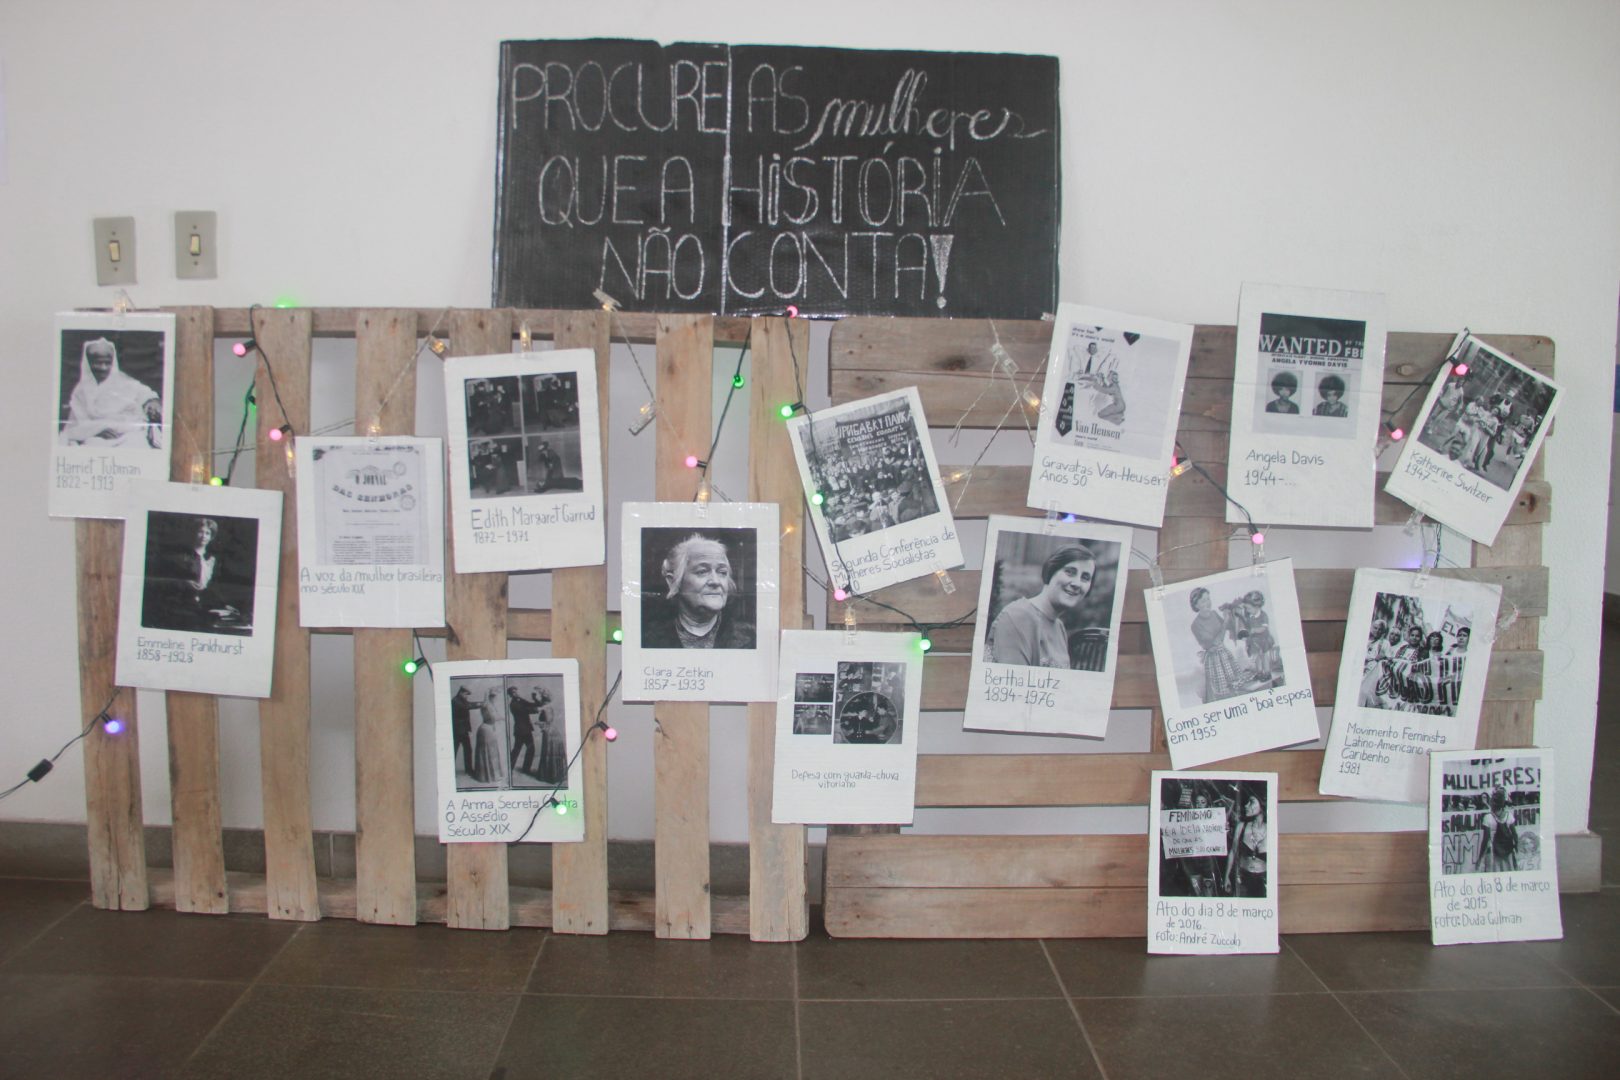 PROCURE AS mulheres
QUE A HISTÓRIA
NÃO CONTA!
Harriet Tubman
1822-1913
Emmeline Pankhurst
1858-1928
O JORNAL
DAS SENHORAS
A voz da mulher brasileira
no século XIX
Edith Margaret Garrud
1872-1971
A Arma Secreta Contra
O Assédio
Século XIX
Clara Zetkin
1857-1933
ПРИБАВКУ ПАЙКА
Segunda Conferência de
Mulheres Socialistas
Defesa com guarda-chuva
vitoriano
it's a man's world
Van Heusen
Gravatas Van-Heusen
Anos 50
Bertha Lutz
1894-1976
WANTED BY THE
FBI
ANGELA YVONNE DAVIS
Angela Davis
1944-...
Katherine Switzer
1947-...
Como ser uma "boa" esposa
em 1955
Movimento Feminista
Latino-Americano e
Caribenho
1981
FEMINISMO
É A IDEIA RADICAL
DE QUE AS
MULHERES
Ato do dia 8 de março
de 2016
Foto: André Zuccolo
DAS
MULHERES!
Ato do dia 8 de março
de 2015
Foto: Duda Gulman